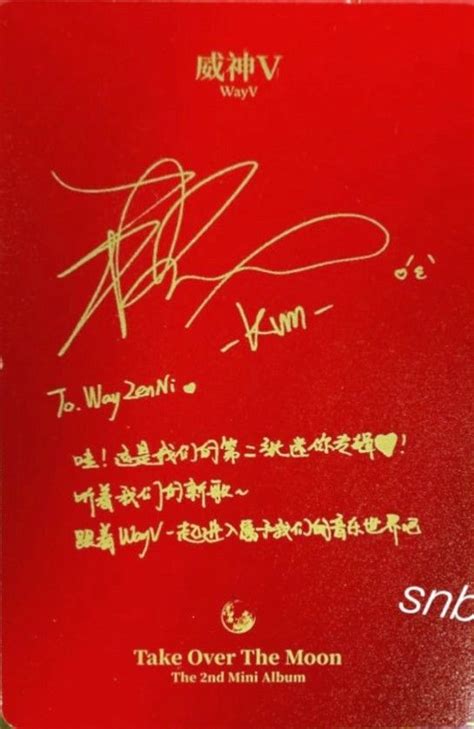 威神V
WayV
-Kun-
To. WayZenNi ♥
哇！这是我们的第二张迷你专辑♥！
听着我们的新歌～
跟着WayV一起进入属于我们的音乐世界吧
snb
Take Over The Moon
The 2nd Mini Album